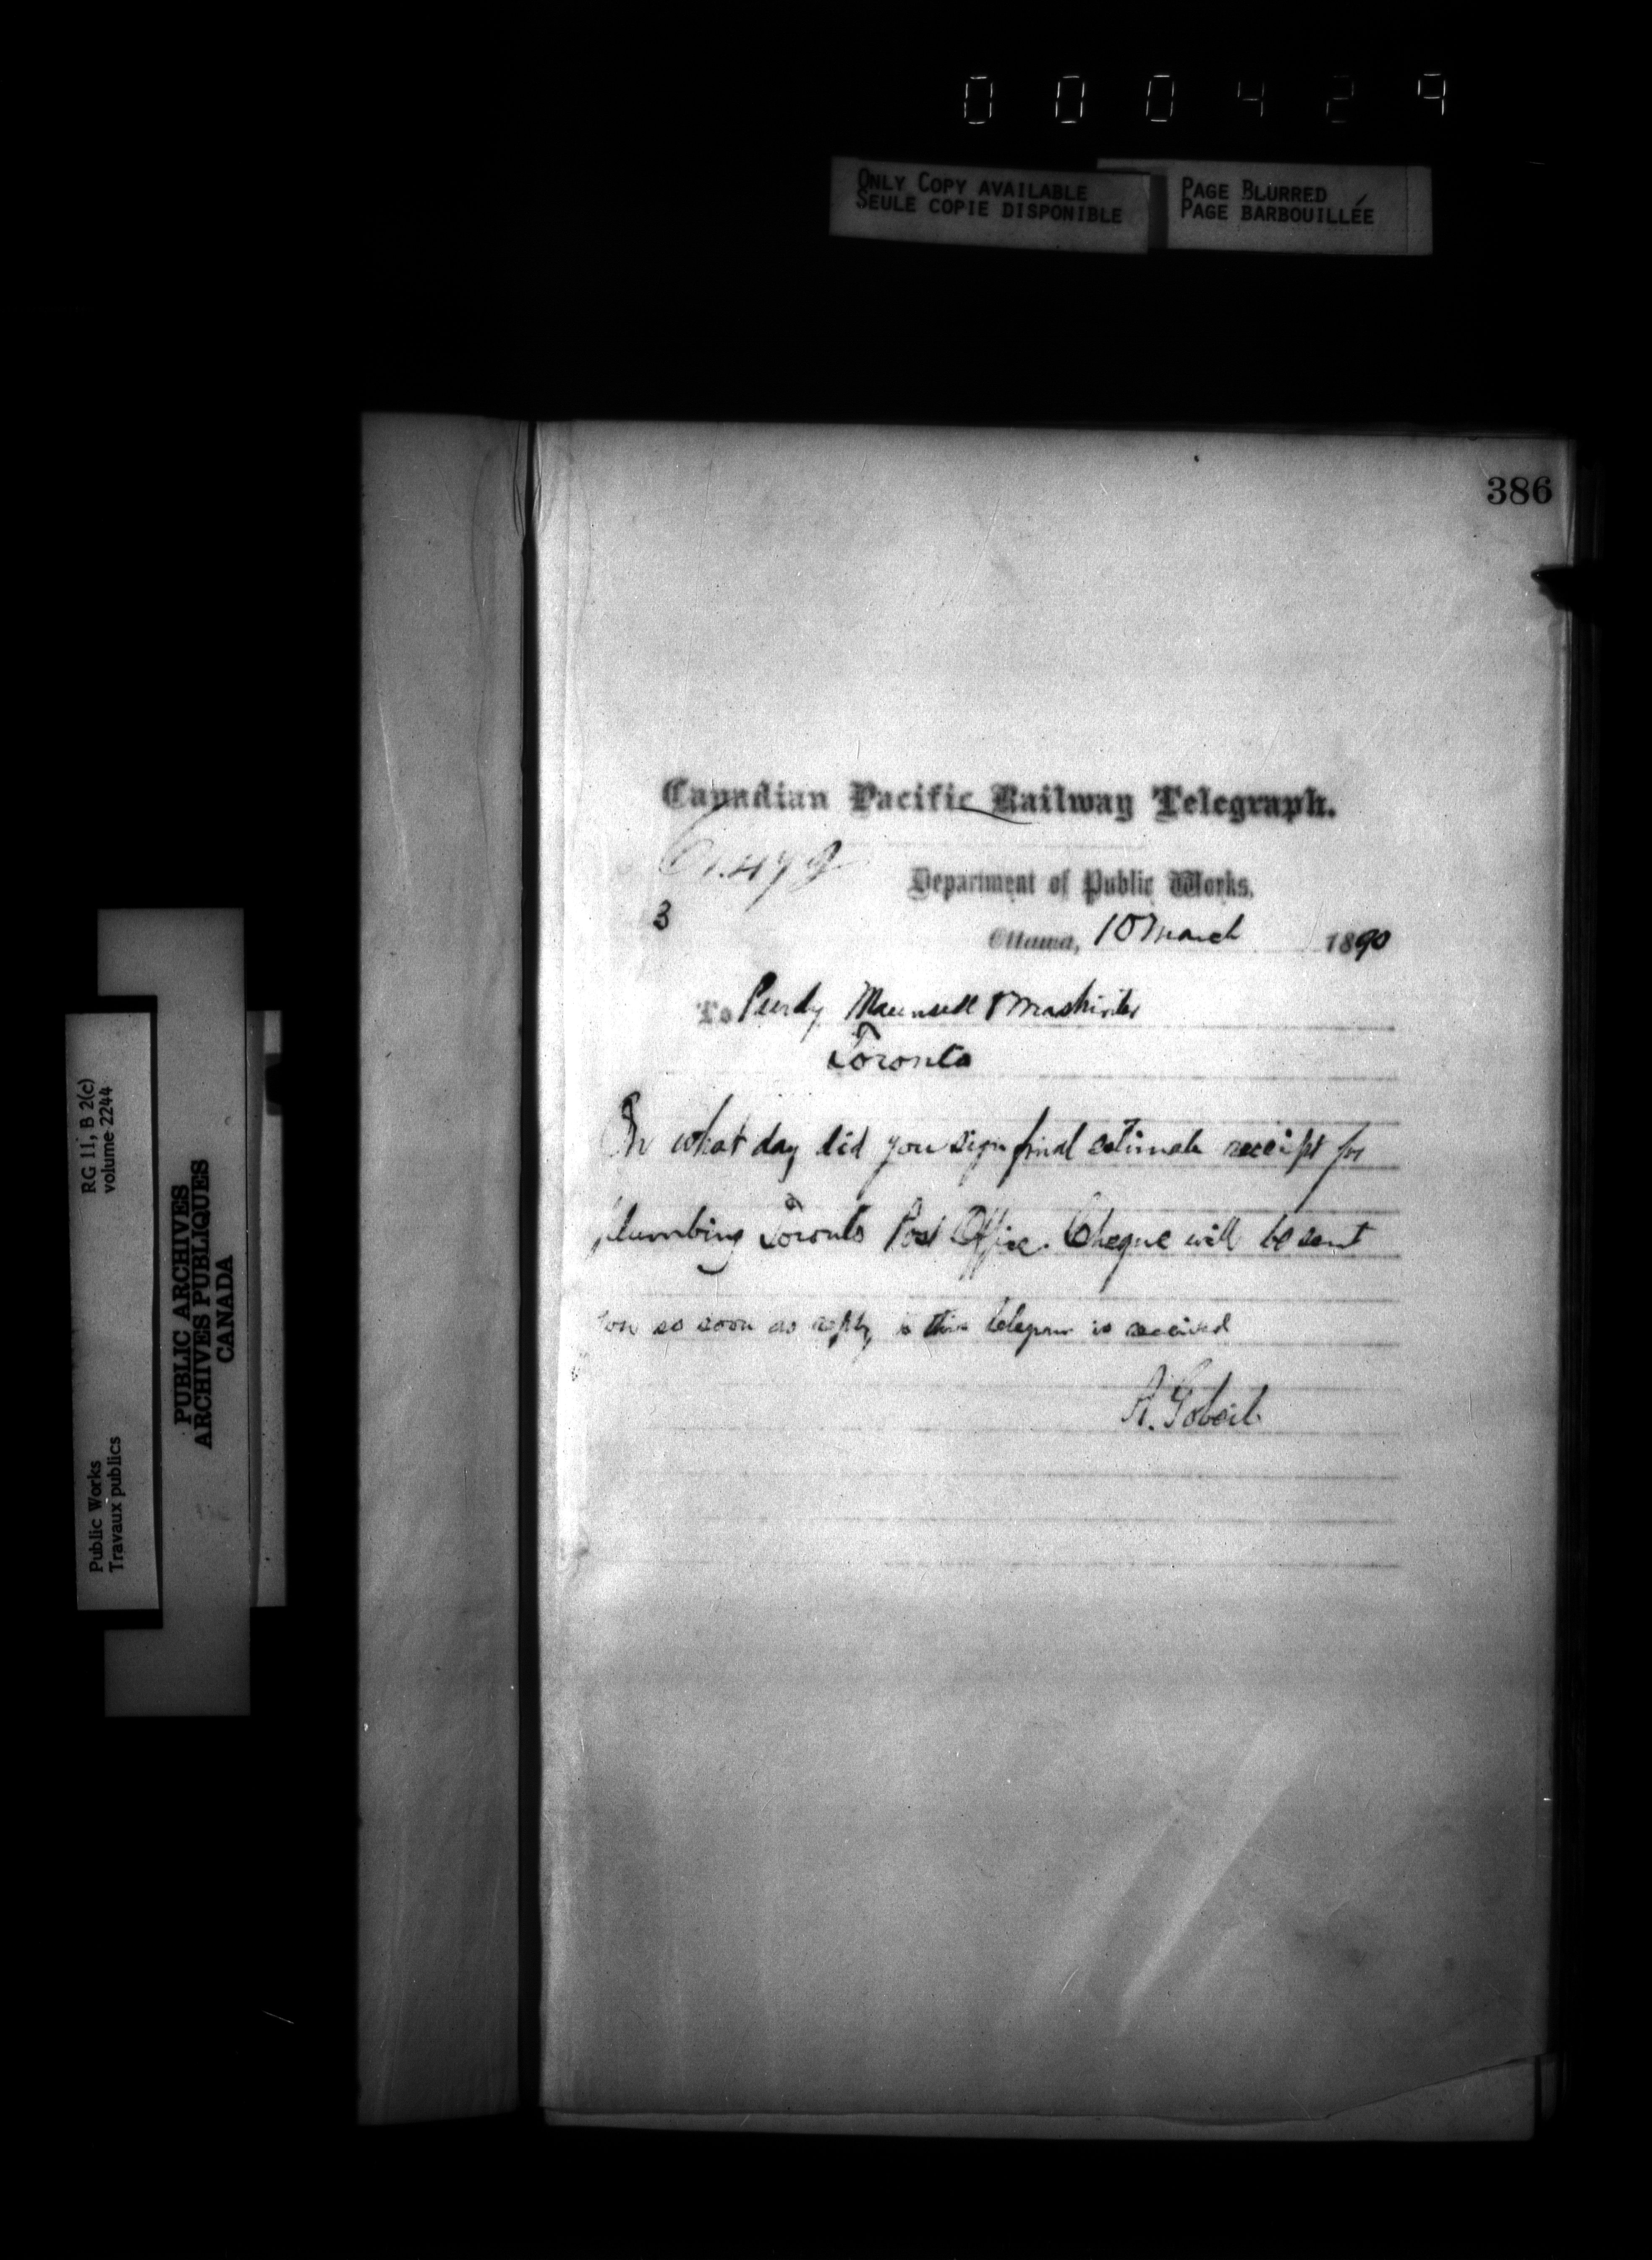 000429
ONLY COPY AVAILABLE
SEULE COPIE DISPONIBLE
PAGE BLURRED
PAGE BARBOUILLÉE
386
Canadian Pacific Railway Telegraph.
Department of Public Works.
3
Ottawa, 10 March 1890
To Purdy Maunsell & Mashinter
Toronto
On what day did you sign final estimate receipt for
plumbing Toronto Post Office. Cheque will be sent
you so soon as reply to this telegram is received
A. Gobeil
RG 11, B 2(c)
volume 2244
Public Works
Travaux publics
PUBLIC ARCHIVES
ARCHIVES PUBLIQUES
CANADA